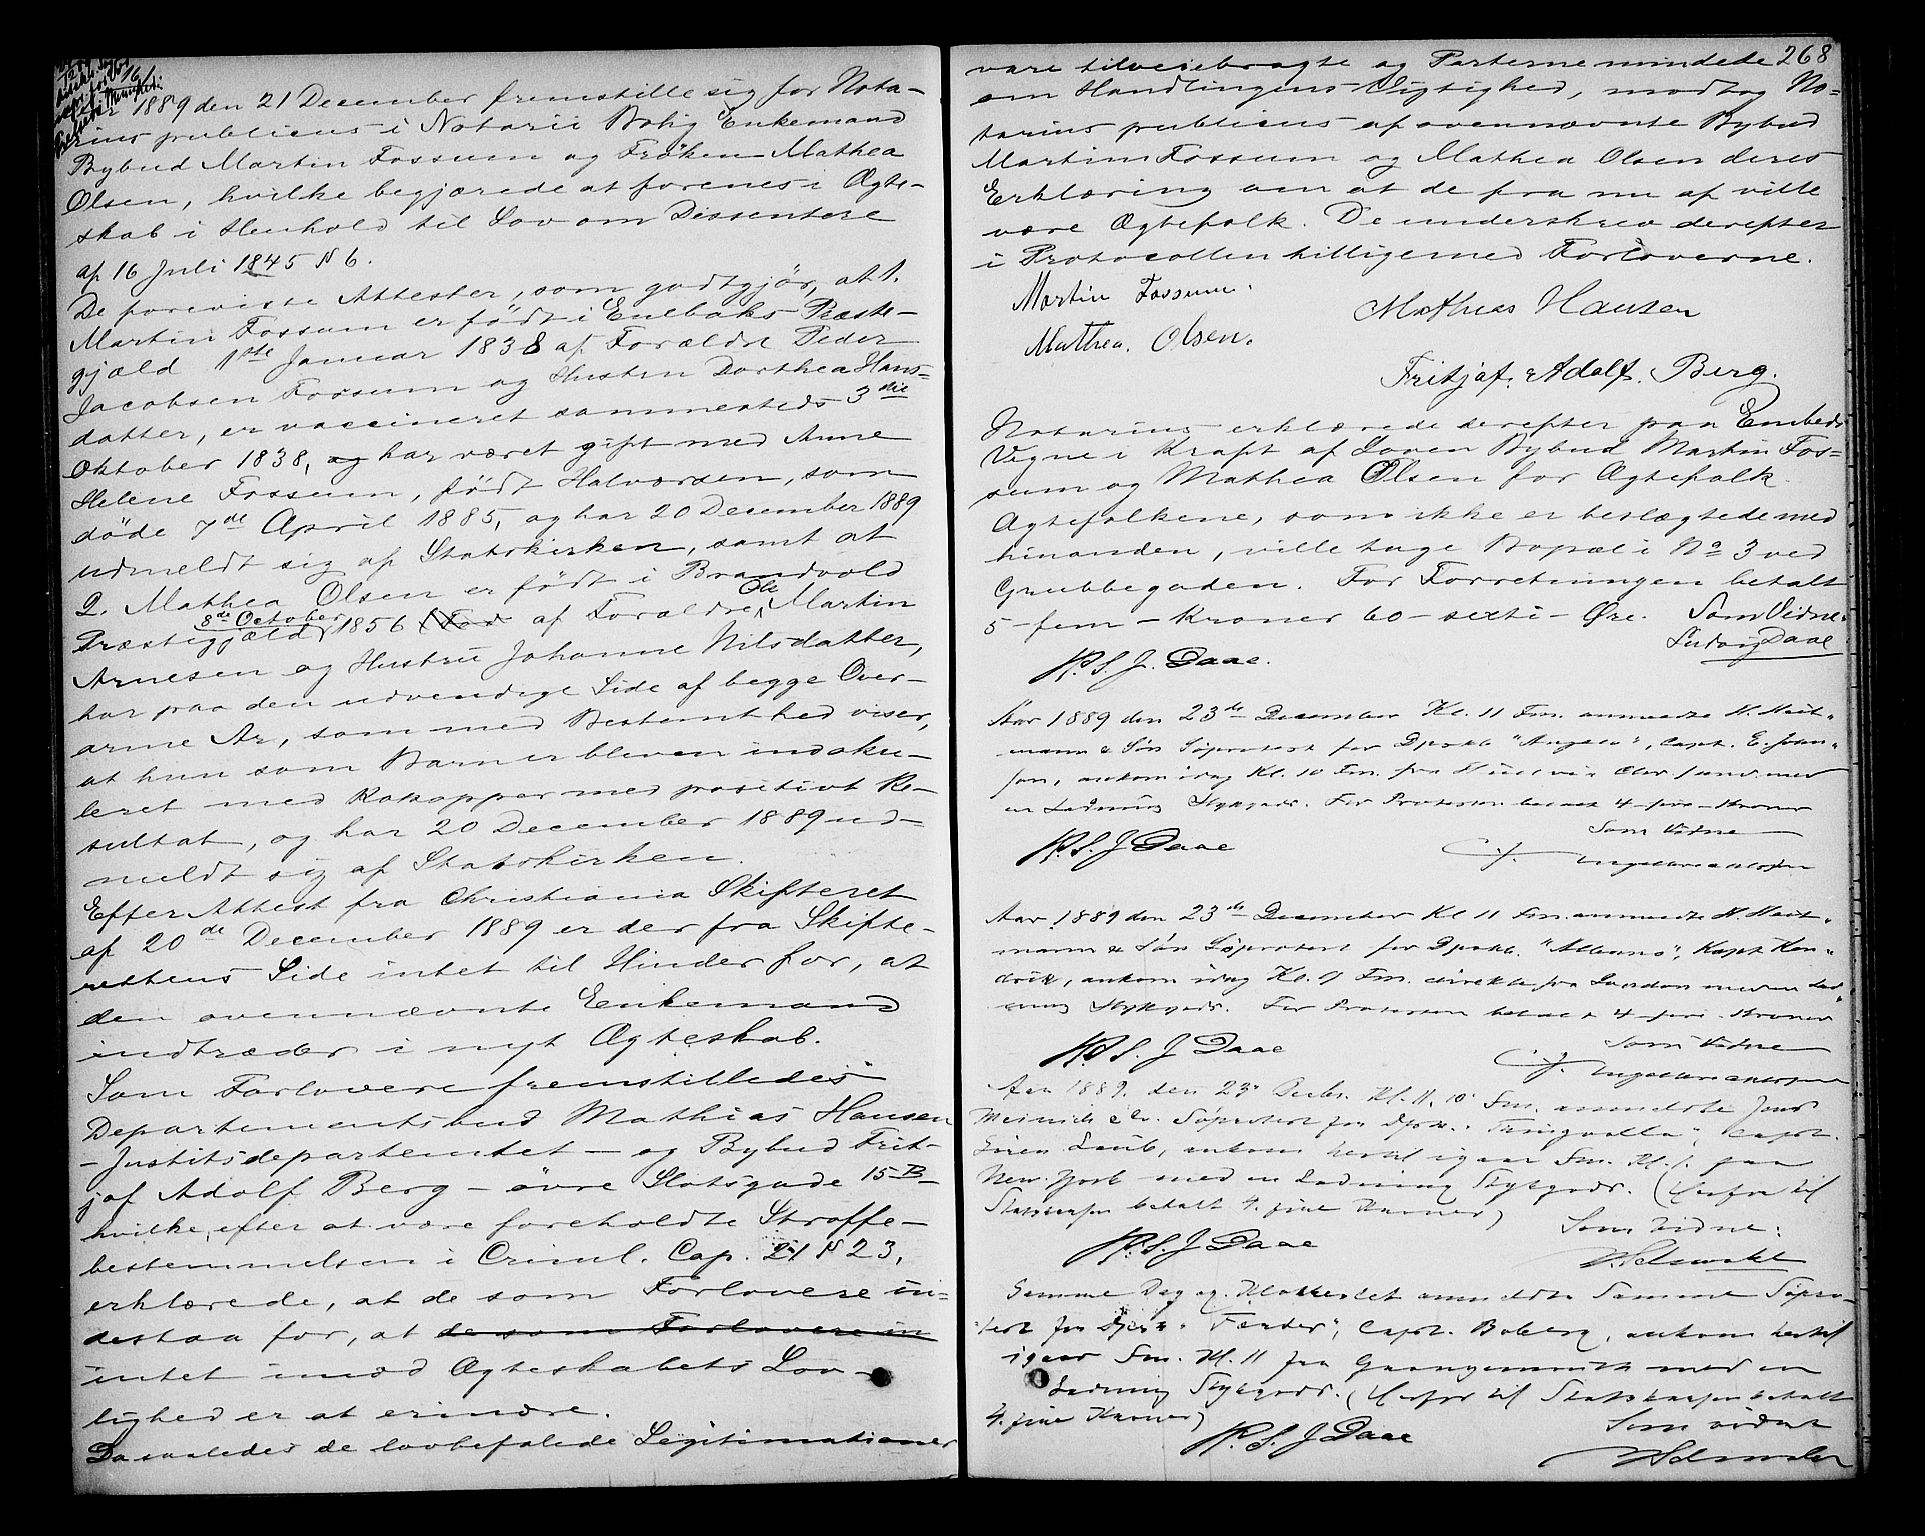 Aar 1889 den 21 December fremstille sig for Nota-
rius publicus i Notarii Bolig Enkemand
Bybud Martin Fossum og Frøken Mathea
Olsen, hvilke begjærede at forenes i Ægte-
skab i Henhold til Lov om Dissentere
af 16 Juli 1845 § 6.
De foreviste Attester, som godtgjør, at 1.
Martin Fossum er født i Enebaks Præste-
gjæld 1ste Januar 1838 af Forældre Peder
Jacobsen Fossum og Hustru Dorthea Hans-
datter, er vaccineret sammesteds 3die
Oktober 1838, og har været gift med Anne
Helene Fossum, født Halvorsen, som
døde 7de April 1885, og har 20 December 1889
udmeldt sig af Statskirken, samt at
2. Mathea Olsen er født i Brandvold
Præstegjæld 8de October 1856 af Forældre Ole Martin
Arnesen og Hustru Johanne Nilsdatter,
har paa den udvendige Side af begge Over-
arme Ar, som med Bestemthed viser,
at hun som Barn er bleven indoku-
leret med Kokopper med positivt Re-
sultat, og har 20 December 1889 ud-
meldt sig af Statskirken.
Efter Attest fra Christiania Skifteret
af 20de December 1889 er der fra Skifte-
rettens Side intet til Hinder for, at
den ovennævnte Enkemand
indtræder i nyt Ægteskab.
Som Forlovere fremstilledes
Departementsbud Mathias Hansen
- Justitsdepartemtet - og Bybud Frit-
jof Adolf Berg - øvre Slotsgade 15 B -
hvilke, efter at være foreholdte Straffe-
bestemmelsen i Criml. Cap. 21 § 23,
erklærede, at de som Forlovere in-
destaa for, at de som Forlovere in
intet imod Ægteskabets Lov-
lighed er at erindre.
Da saaledes de lovbefalede Legitimationer
268
vare tilveiebragte og Parterne mindede
om Handlingens Vigtighed, modtog No-
tarius publicus af ovennævnte Bybud
Martin Fossum og Mathea Olsen deres
Erklæring om at de fra nu af ville
være Ægtefolk. De underskrev derefter
i Protocollen tilligemed Forloverne.
Martin Fossum.
Mathias Hansen
Mathea. Olsen.
Fritjof. Adolf. Berg.
Notarius erklærede derefter paa Embeds
Vegne i Kraft af Loven Bybud Martin Fos-
sum og Mathea Olsen for Ægtefolk.
Ægtefolkene, som ikke er beslægtede med
hinanden, ville tage Bopæl i No 3 ved
Grubbegaden. For Forretningen betalt
5 - fem - Kroner 60 - sexti - Øre. Som Vidne:
Ludvig Daae
P.S.J. Daae.
Aar 1889 den 23de December Kl. 11 Fm. anmeldte H. Heit-
mann & Søn Søprotest for Dpskb. "Angelo", Capt.
ankom idag Kl. 10 Fm. fra Hull via Chr.sand med
en Ladning Stykgods. For Protesten betalt 4 - fire - Kroner
Som Vidne
P.S.J Daae
Aar 1889 den 23de December Kl 11 Fm. anmeldte H. Heit-
mann & Søn Søprotest for Dpskb. Kapt Ken-
drik, ankom idag Kl. 9 Fm. direkte fra London med en Lad-
ning Stykgods. For Protesten betalt 4 - fire - Kroner
Som Vidne
P.S.J Daae
Aar 1889, den 23de Decbr. Kl. 11.10 Fm. anmeldte Jens
Meinich & Co. Søprotest for Dpsk. "Thingvalla", Capt.
Laub, ankom hertil igaar Fm. Kl. fra
New-York med en Ladning Stykgods. (Herfor til
Statskassen betalt 4. fire Kroner)
Som Vidne:
P.S.J Daae
Samme Dag og Klokkeslet anmeldte Samme Søpro-
test for Dpsk. "Færder", Capt. Boberg, ankom hertil
igaar Fm. Kl. 11 fra Grangemouth med en
Ladning Stykgods. (Herfor til Statskassen betalt
4. fire Kroner)
Som vidne
P.S.J Daae